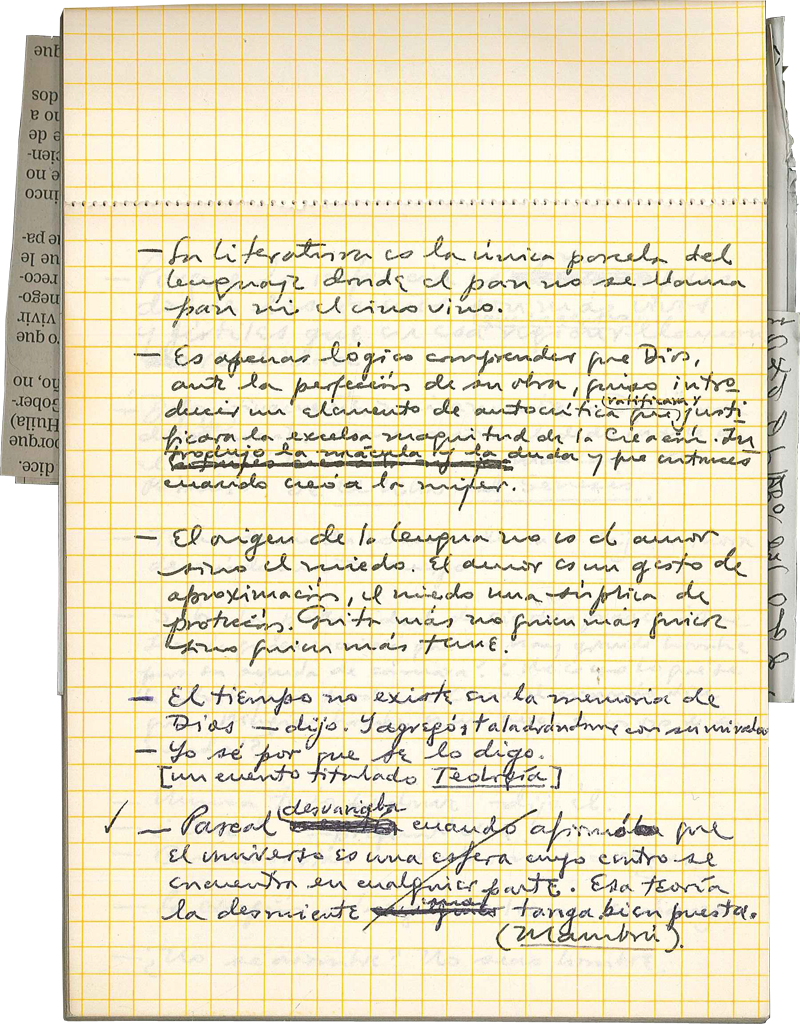 que
dos
no a
e de
cien-
e no
inco
ue pa-
ue le
reco-
nego-
vivir
ro que
ño, no
Gober-
(Huila)
porque
dice.
— La literatura es la única parcela del
lenguaje donde el pan no se llama
pan ni el vino vino.
— Es apenas lógico comprender que Dios,
ante la perfección de su obra, quiso intro-
ducir un elemento de autocrítica que (ratificara y) justi
ficara la excelsa magnitud de la Creación. In
trodujo la mácula y la duda y fue entonces
cuando creó a la mujer.
— El origen de la lengua no es el amor
sino el miedo. El amor es un gesto de
aproximación, el miedo una súplica de
protección. Grita más no quien más quiere
sino quien más teme.
— El tiempo no existe en la memoria de
Dios — dijo. Y agregó, taladrándome con su mirada
— Yo sé por que se lo digo.
[un cuento titulado Teología]
✓ — Pascal desvariaba cuando afirmó que
el universo es una esfera cuyo centro se
encuentra en cualquier parte. Esa teoría
la desmiente una tanga bien puesta.
(Mambrú).